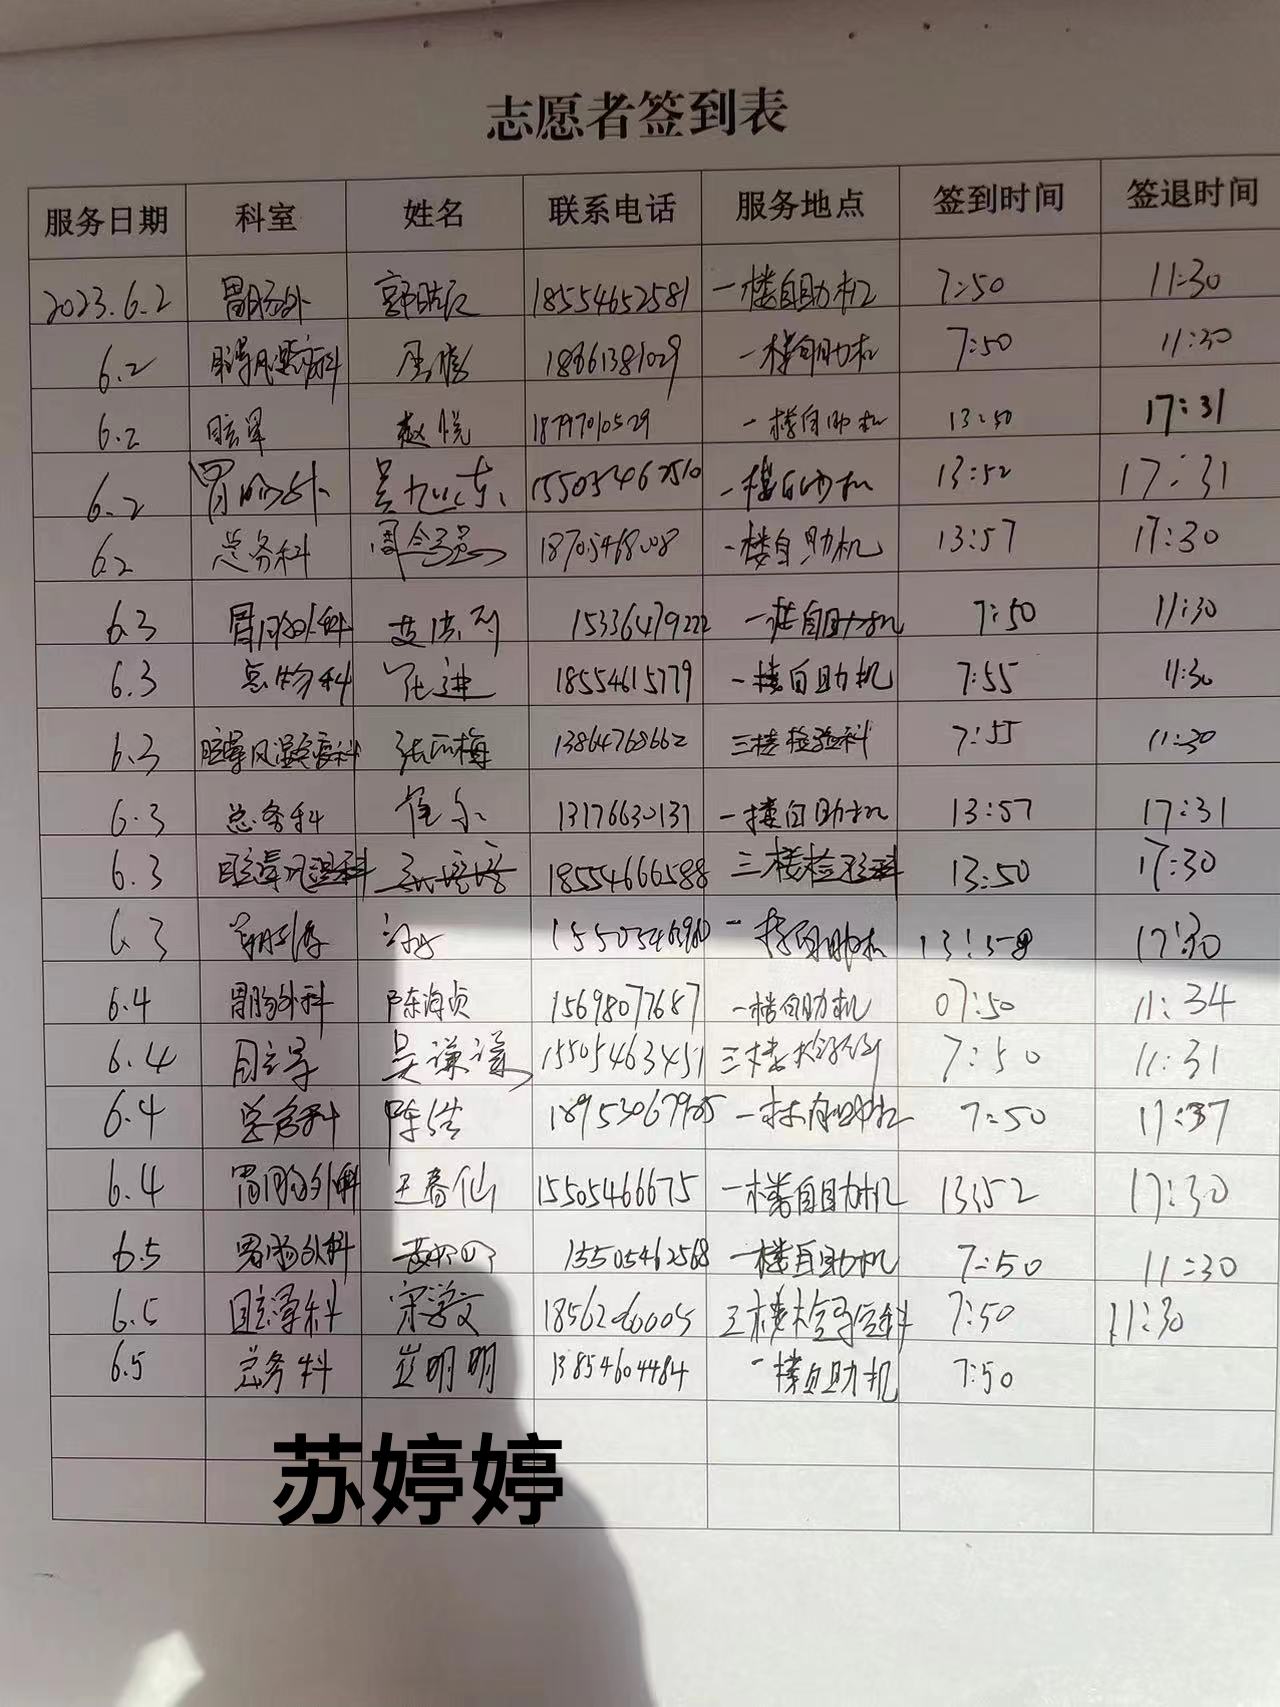 志愿者签到表
服务日期 科室 姓名 联系电话 服务地点 签到时间 签退时间
2023.6.2 胃肠外 18554652581 一楼自助机 7:50 11:30
6.2 眩晕风湿病科 18661381029 一楼自助机 7:50 11:30
6.2 眩晕 赵悦 18797010529 一楼自助机 13:50 17:31
6.2 胃肠外 15505462510 一楼自助机 13:52 17:31
6.2 总务科 一楼自助机 13:57 17:30
6.3 胃肠外科 15336479222 一楼自助机 7:50 11:30
6.3 总物科 18554615779 一楼自助机 7:55 11:30
6.3 眩晕风湿病科 13864768662 三楼检验科 7:55 11:30
6.3 总务科 崔尔 13176630131 一楼自助机 13:57 17:31
6.3 眩晕风湿科 18554666588 三楼检验科 13:50 17:30
6.3 一楼自助机 17:30
6.4 胃肠外科 陈海贞 15698077687 一楼自助机 07:50 11:34
6.4 眩晕 吴谦谦 15505463451 7:50 11:31
6.4 总务科 陈浩 18953067985 7:50 11:37
6.4 胃肠外科 王春仙 15505466675 一楼自助机 13:52 17:30
6.5 胃肠外科 15505462568 一楼自助机 7:50 11:30
6.5 眩晕科 宋学文 7:50 11:30
6.5 总务科 崔明明 13854604484 一楼自助机 7:50
苏婷婷